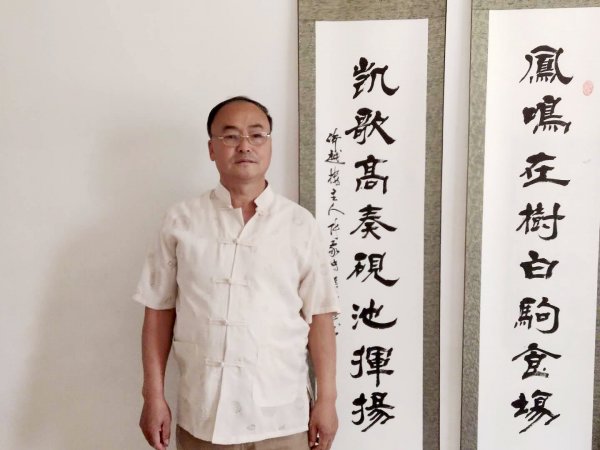 鳳鳴在樹白駒食場
凱歌高奏硯池揮揚
主人